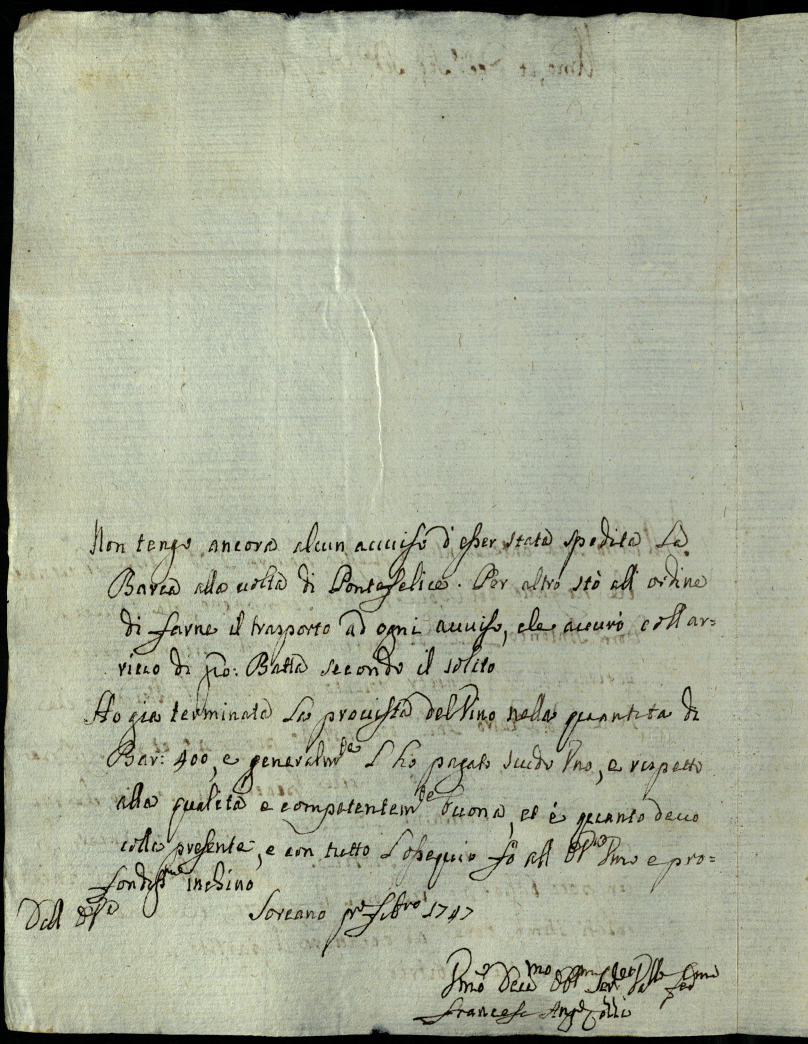 Non tengo ancora alcun avviso d'esser stata spedita La
Barca alla volta di Pontefelice. Per altro stò all'ordine
di farne il trasporto ad ogni avviso, che avverò coll'ar=
rivo di Gio: Batta secondo il solito
Ho gia terminata La provista del Vino nella quantita di
Bar: 400, e generalmte L'ho pagato scudo Uno, e rispetto
alla qualità e competentemte buona, et è quanto devo
colla presente, e con tutto L'ossequio fò all' Uma e pro=
fondissmo inchino
Dell
Soreano pro Febro 1747
Francesco